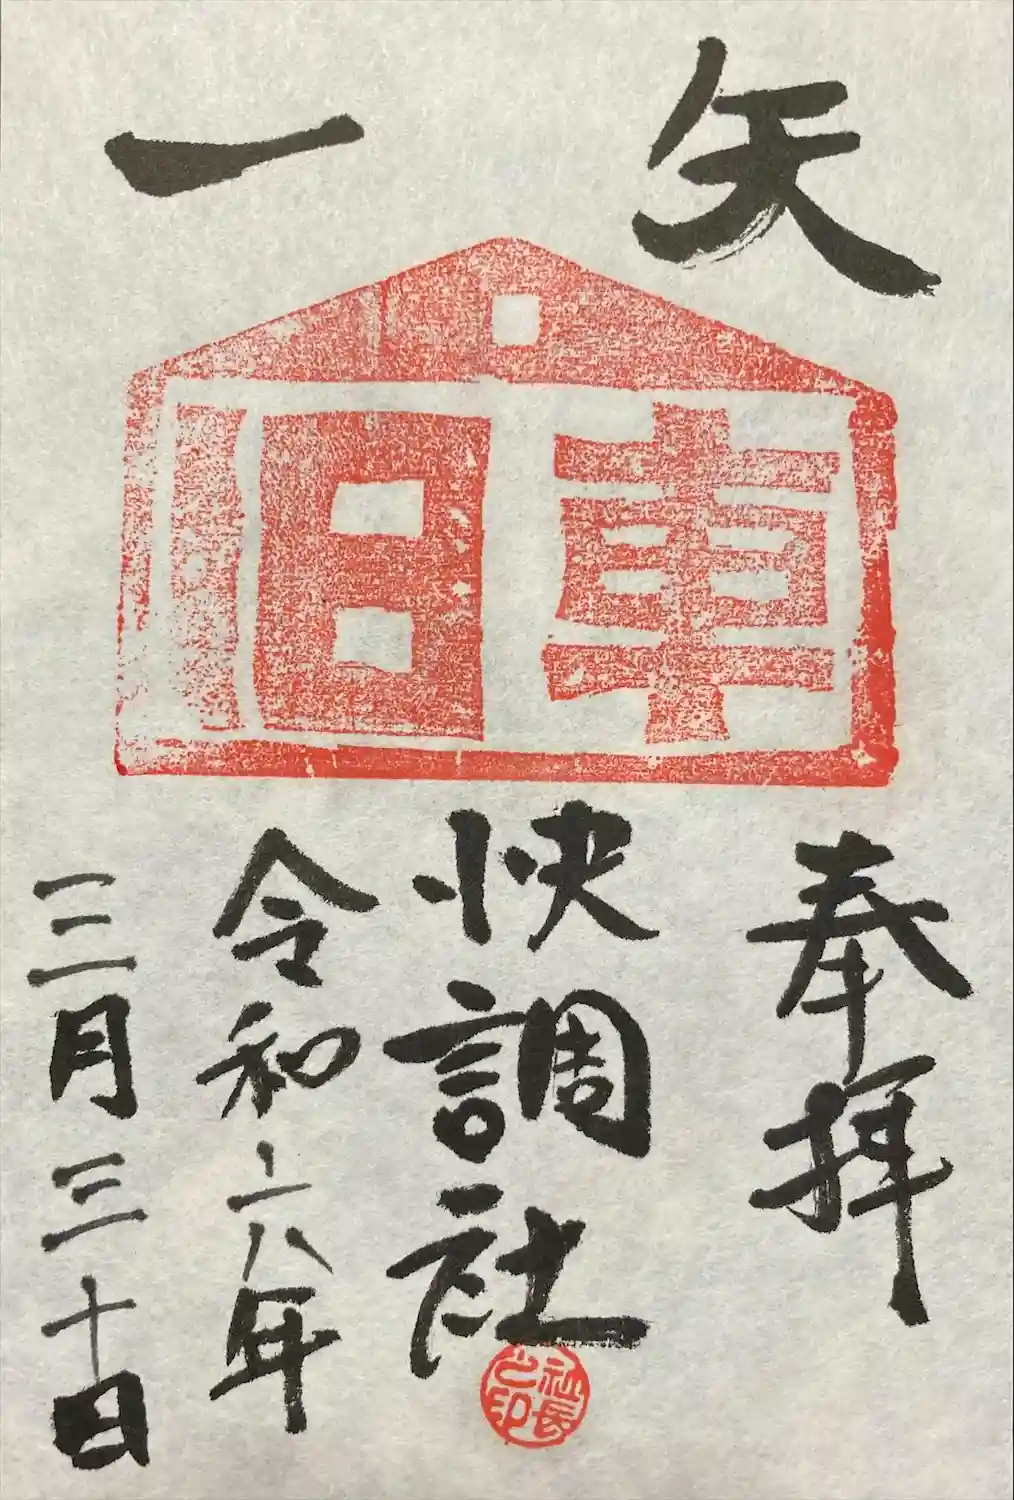 矢一
車旧
奉拝
快調社
社長之印
令和六年
三月三十日